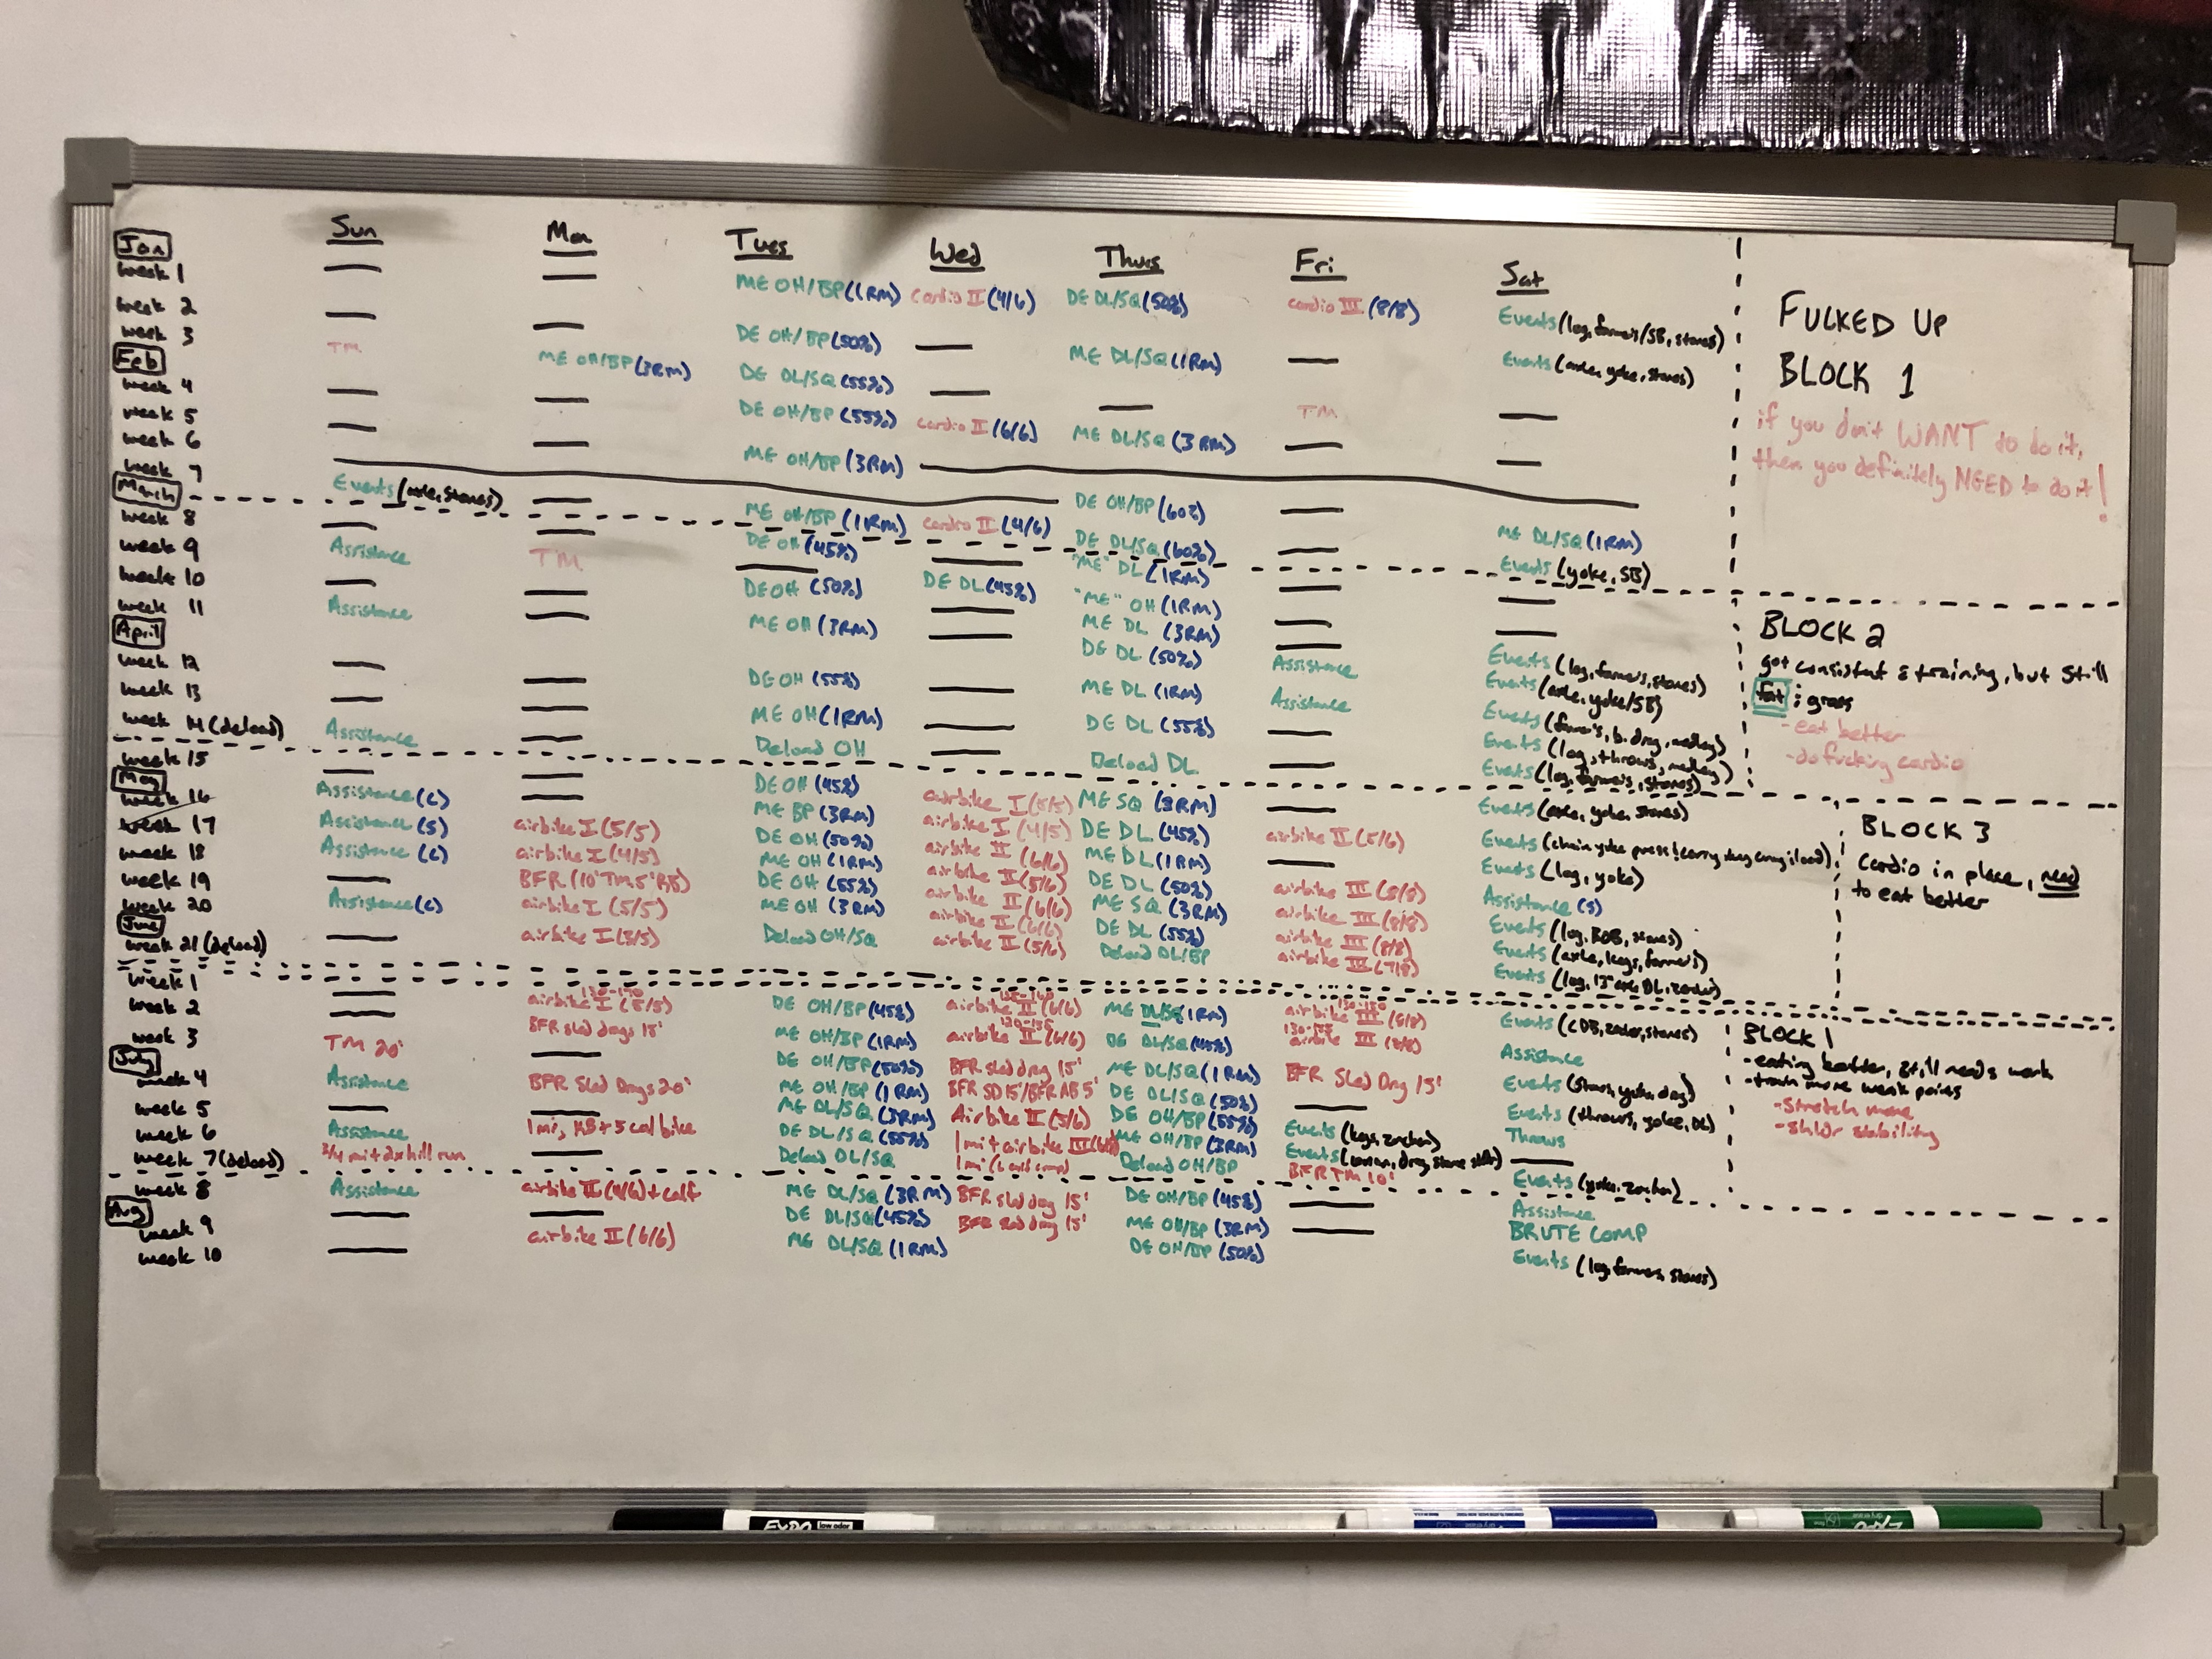 Sun Mon Tues Wed Thurs Fri Sat
Jan
week 1 ME OH/BP (1RM) cardio II (4/6) DE DL/SQ (50%) cardio III (8/8)
week 2 Events (log, farmers/SB, stones)
week 3 DE OH/BP (50%) ME DL/SQ (1RM) Events (axle, yoke, stones)
TM ME OH/BP (3RM)
Feb
week 4 DE DL/SQ (55%)
week 5 DE OH/BP (55%) cardio II (6/6) ME DL/SQ (3RM) TM
week 6 ME OH/BP (3RM)
week 7
Events (axle, stones) DE OH/BP (60%)
March
week 8 ME OH/BP (1RM) cardio II (4/6) DE DL/SQ (60%) ME DL/SQ (1RM)
Events (yoke, SB)
FUCKED UP
BLOCK 1
if you don't WANT to do it,
then you definitely NEED to do it!
week 9 Assistance TM DE OH (45%) "ME" DL (1RM)
week 10 DE OH (50%) DE DL (45%) "ME" OH (1RM)
week 11 Assistance ME OH (3RM) ME DL (3RM)
April
DE DL (50%) Assistance Events (log, farmers, stones)
week 12 DE OH (55%) ME DL (1RM) Assistance Events (axle, yoke/SB)
week 13 ME OH (1RM) DE DL (55%) Events (farmers, b. drag, medley)
week 14 (deload) Assistance Deload OH Deload DL Events (log, throws, medley)
Events (log, farmers, stones)
BLOCK 2
got consistent & training, but still
fat & gross
- eat better
- do fucking cardio
week 15 DE OH (45%) airbike I (5/5) ME SQ (3RM) Events (axle, yoke, stones)
May
week 16 Assistance (C) ME BP (3RM) airbike I (4/5) DE DL (45%) airbike II (5/6)
week 17 Assistance (S) airbike I (5/5) DE OH (50%) airbike II (6/6) ME DL (1RM) Events (log, yoke)
week 18 Assistance (C) airbike I (4/5) ME OH (1RM) airbike II (5/6) DE DL (50%) airbike III (8/8) Assistance (S)
week 19 BFR (10' TM 5' RB) DE OH (55%) airbike II (6/6) ME SQ (3RM) airbike III (8/8)
week 20 Assistance (C) airbike I (5/5) ME OH (3RM) airbike II (6/6) DE DL (55%) airbike III (8/8) Events (axle, kegs, farmers)
June
week 21 (deload) airbike I (5/5) Deload OH/SQ airbike II (5/6) Deload DL/BP airbike III (7/8)
BLOCK 3
Cardio in place, need
to eat better
week 1 130-170
airbike I (5/5) DE OH/BP (45%) airbike II (6/6) ME DL/SQ (1RM) airbike III (8/8) Events (CDB, zercher, stones)
week 2 BFR sled drags 15' ME OH/BP (1RM) airbike II (6/6) DE DL/SQ (45%) airbike III (8/8) Assistance
week 3 TM 20' DE OH/BP (50%) BFR sled drag 15' ME DL/SQ (1RM) BFR Sled Drag 15'
July
week 4 Assistance BFR Sled Drags 20' ME OH/BP (1RM) BFR SD 15'/BFR AB 5' DE DL/SQ (50%) Events (throws, yoke, DL)
week 5 ME DL/SQ (3RM) Airbike II (5/6) DE OH/BP (55%) Events (kegs, zercher) Throws
week 6 Assistance 1 mi, KB + 5 cal bike DE DL/SQ (55%) 1 mi + airbike III ME OH/BP (3RM)
week 7 (deload) 3/4 mi + 2x hill run Deload DL/SQ Deload OH/BP BFR TM 10' Events (yoke, zercher)
BLOCK 1
- eating better, still needs work
- train more weak points
- stretch more
- shldr stability
week 8 Assistance airbike II (4/6) + calf ME DL/SQ (3RM) BFR sled drag 15' DE OH/BP (45%) Assistance
Aug
week 9 DE DL/SQ (45%) BFR sled drag 15' ME OH/BP (3RM) BRUTE COMP
week 10 airbike II (6/6) ME DL/SQ (1RM) DE OH/BP (50%) Events (log, farmers, stones)
EXPO low odor
EXPO